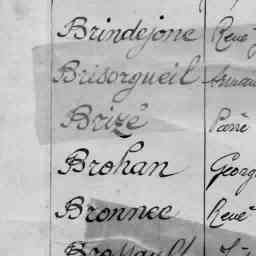 Brindejone René
Brisorgueil Arman
Brizé René
Brohan Georg
Bronnec René